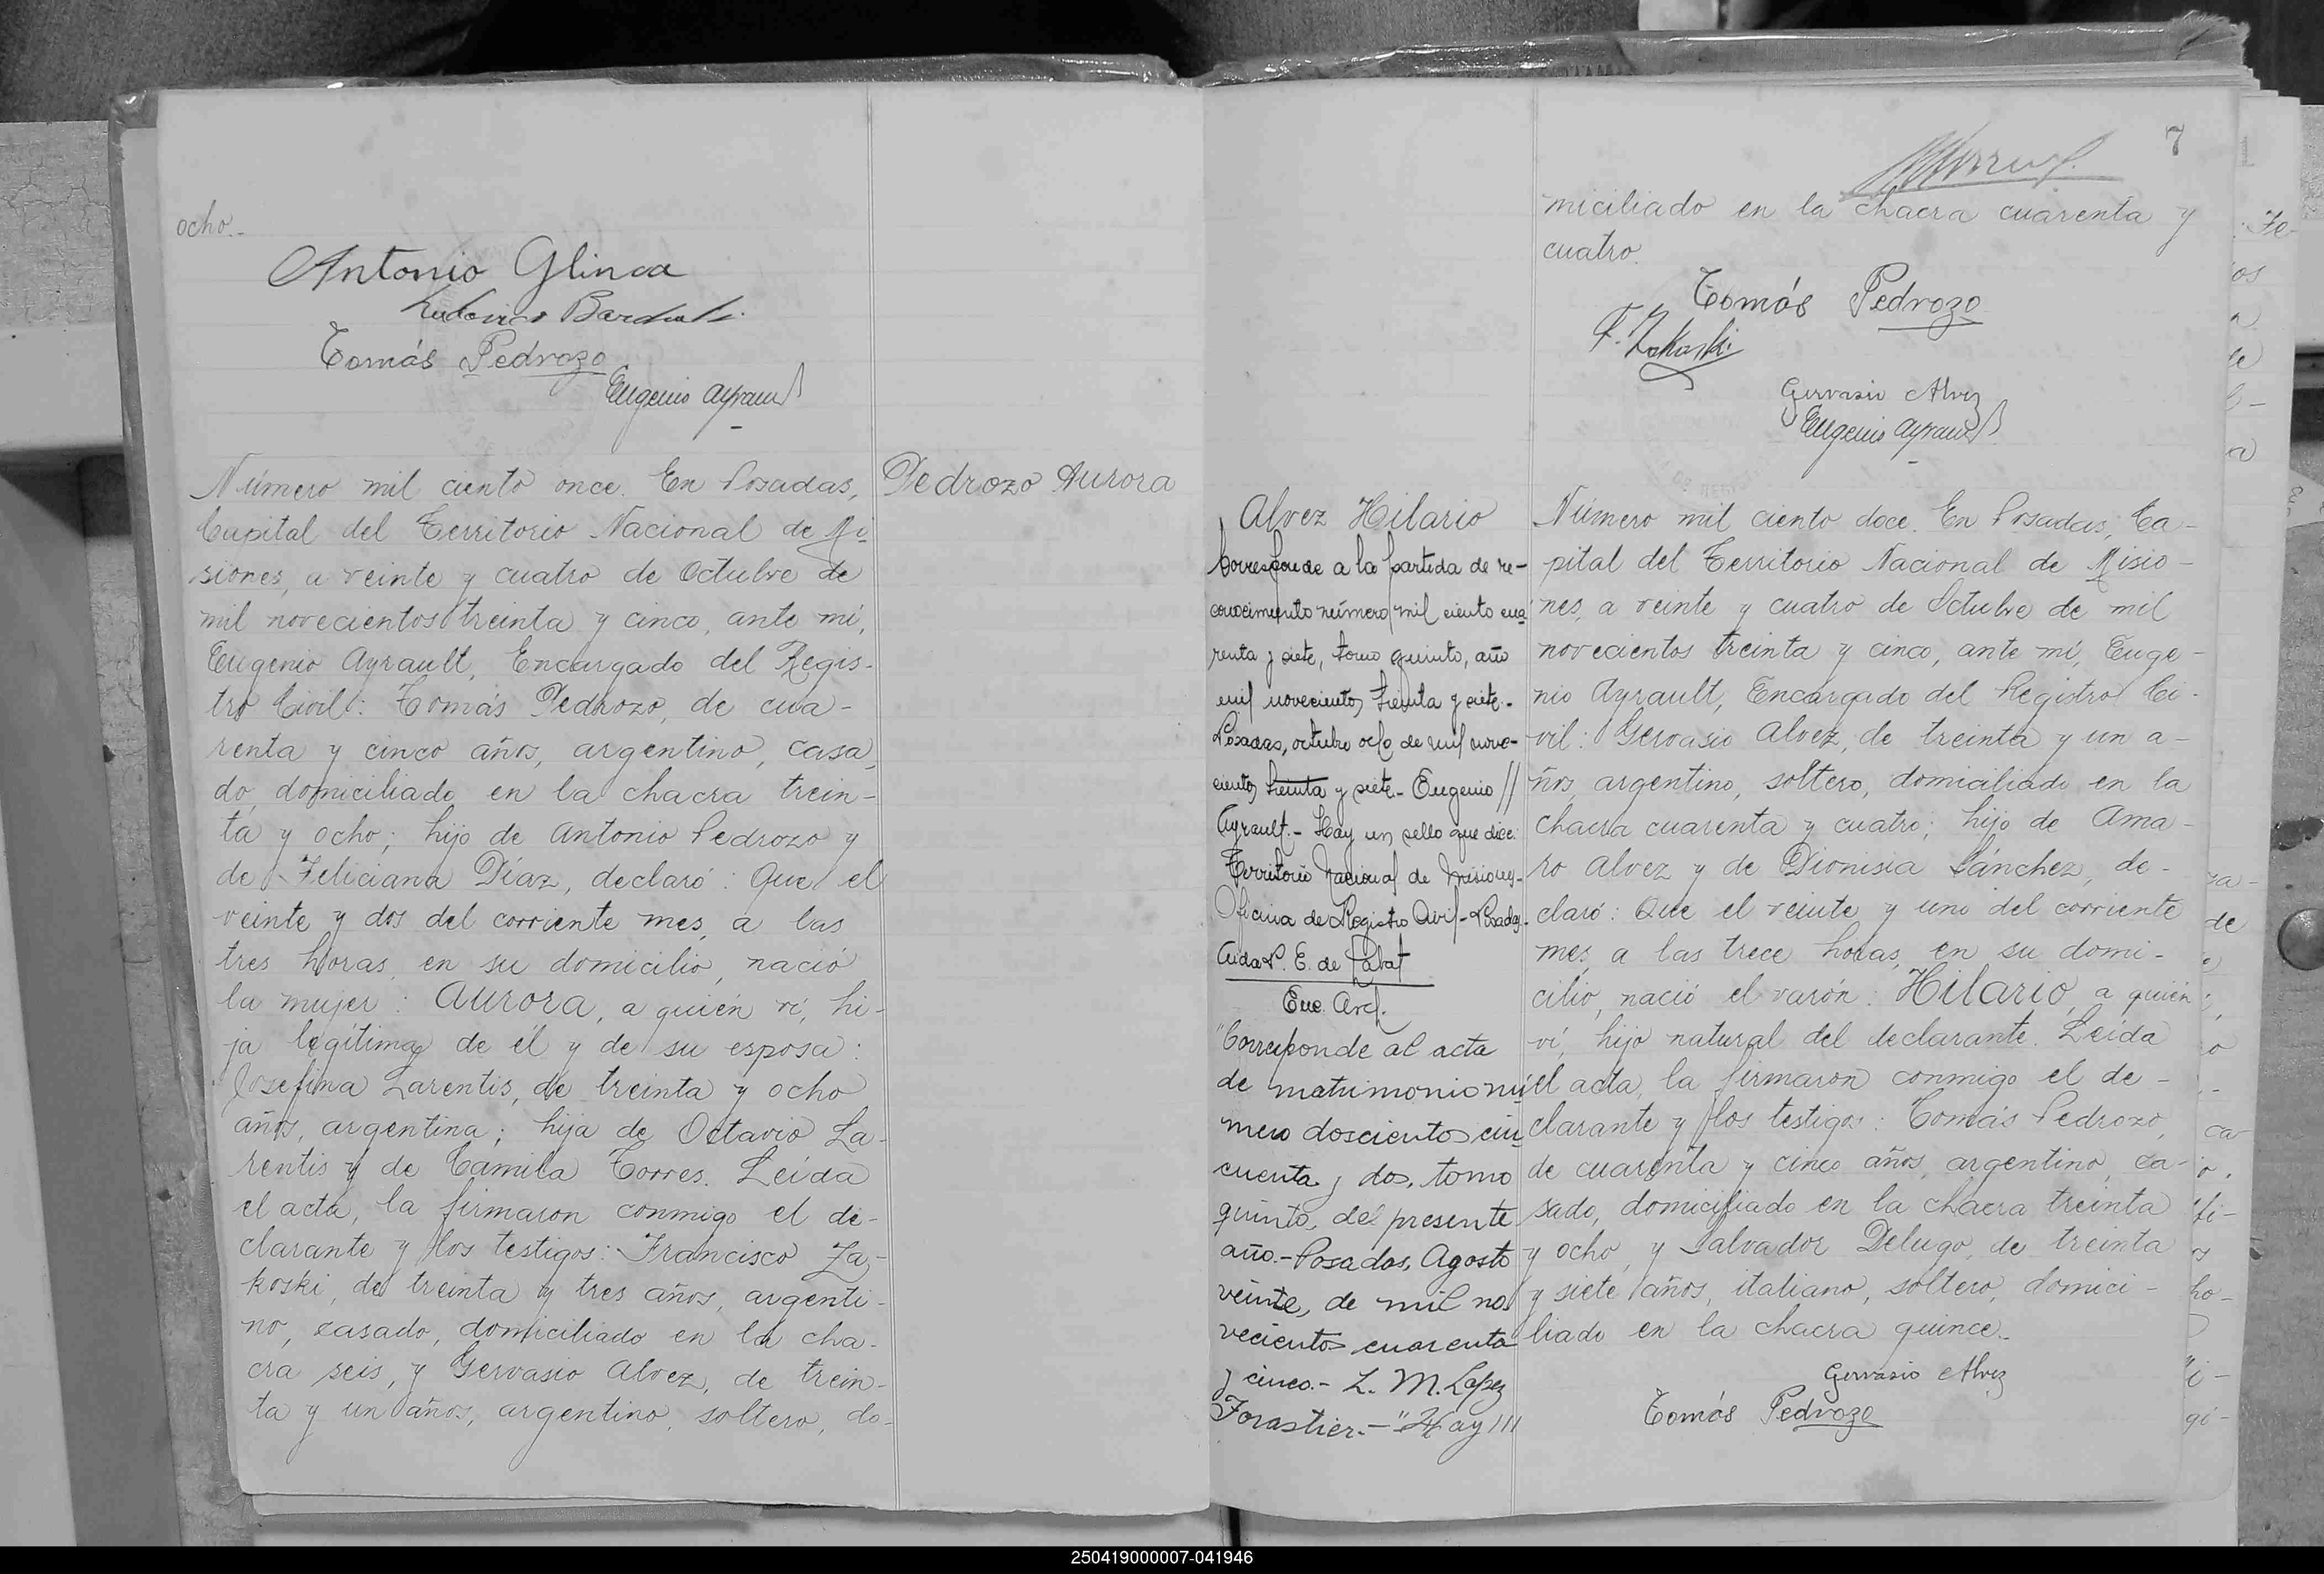 ocho.-
Antonio Glinca
Tomás Pedrozo
Eugenio Ayrault
Número mil ciento once. En Posadas,
Capital del Territorio Nacional de Mi-
siones, a veinte y cuatro de Octubre de
mil novecientos treinta y cinco, ante mí,
Eugenio Ayrault, Encargado del Regis-
tro Civil: Tomás Pedrozo, de cua-
renta y cinco años, argentino, casa-
do, domiciliado en la chacra trein-
ta y ocho; hijo de Antonio Pedrozo y
de Feliciana Díaz, declaró: Que el
veinte y dos del corriente mes, a las
tres horas, en su domicilio, nació
la mujer: Aurora, a quién ví, hi-
ja legítima de él y de su esposa:
Josefina Larentis, de treinta y ocho
años, argentina; hija de Octavio La-
rentis y de Camila Torres. Leída
el acta, la firmaron conmigo el de-
clarante y los testigos: Francisco Za-
koski, de treinta y tres años, argenti-
no, casado, domiciliado en la cha-
cra seis, y Gervasio Alvez, de trein-
ta y un años, argentino, soltero, do-
Pedrozo Aurora
7
miciliado en la chacra cuarenta y
cuatro.
Tomás Pedrozo
F. Zakoski
Gervasio Alvez
Eugenio Ayrault
Alvez Hilario
Corresponde a la partida de re-
conocimiento número mil ciento cua-
renta y siete, tomo quinto, año
mil novecientos treinta y siete.-
Posadas, octubre ocho de mil nove-
cientos treinta y siete.- Eugenio //
Ayrault.- Hay un sello que dice:
Territorio Nacional de Misiones-
Oficina de Registro Civil- Posadas.
Aida P. E. de
Enc. Arch.
"Corresponde al acta
de matrimonio nú-
mero doscientos cin-
cuenta y dos, tomo
quinto, del presente
año.- Posadas, Agosto
veinte, de mil no-
vecientos cuarenta
y cinco.- L. M. Lopez
Forastier.-" Hay ///
Número mil ciento doce. En Posadas, Ca-
pital del Territorio Nacional de Misio-
nes, a veinte y cuatro de Octubre de mil
novecientos treinta y cinco, ante mí, Euge-
nio Ayrault, Encargado del Registro Ci-
vil: Gervasio Alvez, de treinta y un a-
ños, argentino, soltero, domiciliado en la
chacra cuarenta y cuatro; hijo de Ama-
ro Alvez y de Dionisia Sánchez, de-
claró: Que el veinte y uno del corriente
mes, a las trece horas, en su domi-
cilio, nació el varón: Hilario, a quién
ví, hijo natural del declarante. Leída
el acta, la firmaron conmigo el de-
clarante y los testigos: Tomás Pedrozo,
de cuarenta y cinco años, argentino, ca-
sado, domiciliado en la chacra treinta
y ocho, y Salvador Delugo, de treinta
y siete años, italiano, soltero, domici-
liado en la chacra quince.-
Gervasio Alvez
Tomás Pedrozo
250419000007-041946